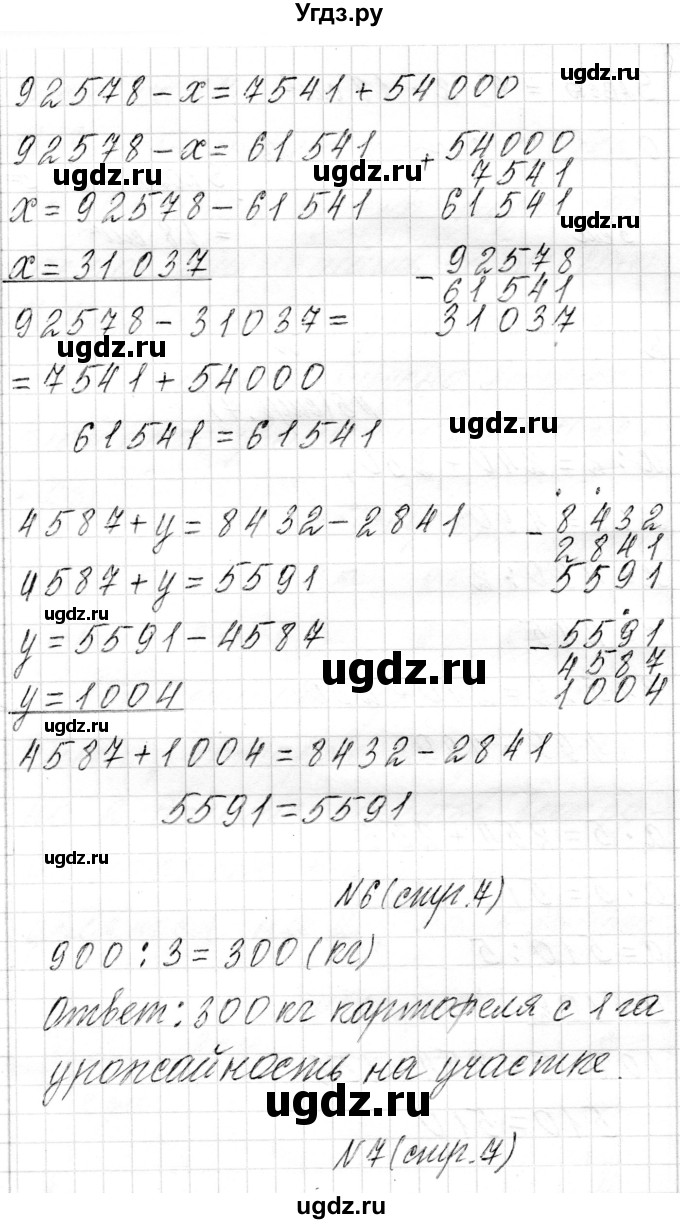 Угдз.ру
ugdz.ru
92578 - x = 7541 + 54000
92578 - x = 61541
+ 54000
7541
61541
ugdz.ru
ugdz.ru
x = 92578 - 61541
ugdz.ru
x = 31037
- 92578
61541
31037
92578 - 31037 =
ugdz.ru
= 7541 + 54000
61541 = 61541
ugdz.ru
4587 + y = 8432 - 2841
- 8432
2841
5591
4587 + y = 5591
ugdz.ru
y = 5591 - 4587
- 5591
4587
1004
ugdz.ru
y = 1004
ugdz.ru
4587 + 1004 = 8432 - 2841
5591 = 5591
ugdz.ru
N6 (стр. 7)
900 : 3 = 300 (кг)
Ответ: 300 кг картофеля с 1 га
урожайность на участке.
ugdz.ru
N7 (стр. 7)
ugdz.ru